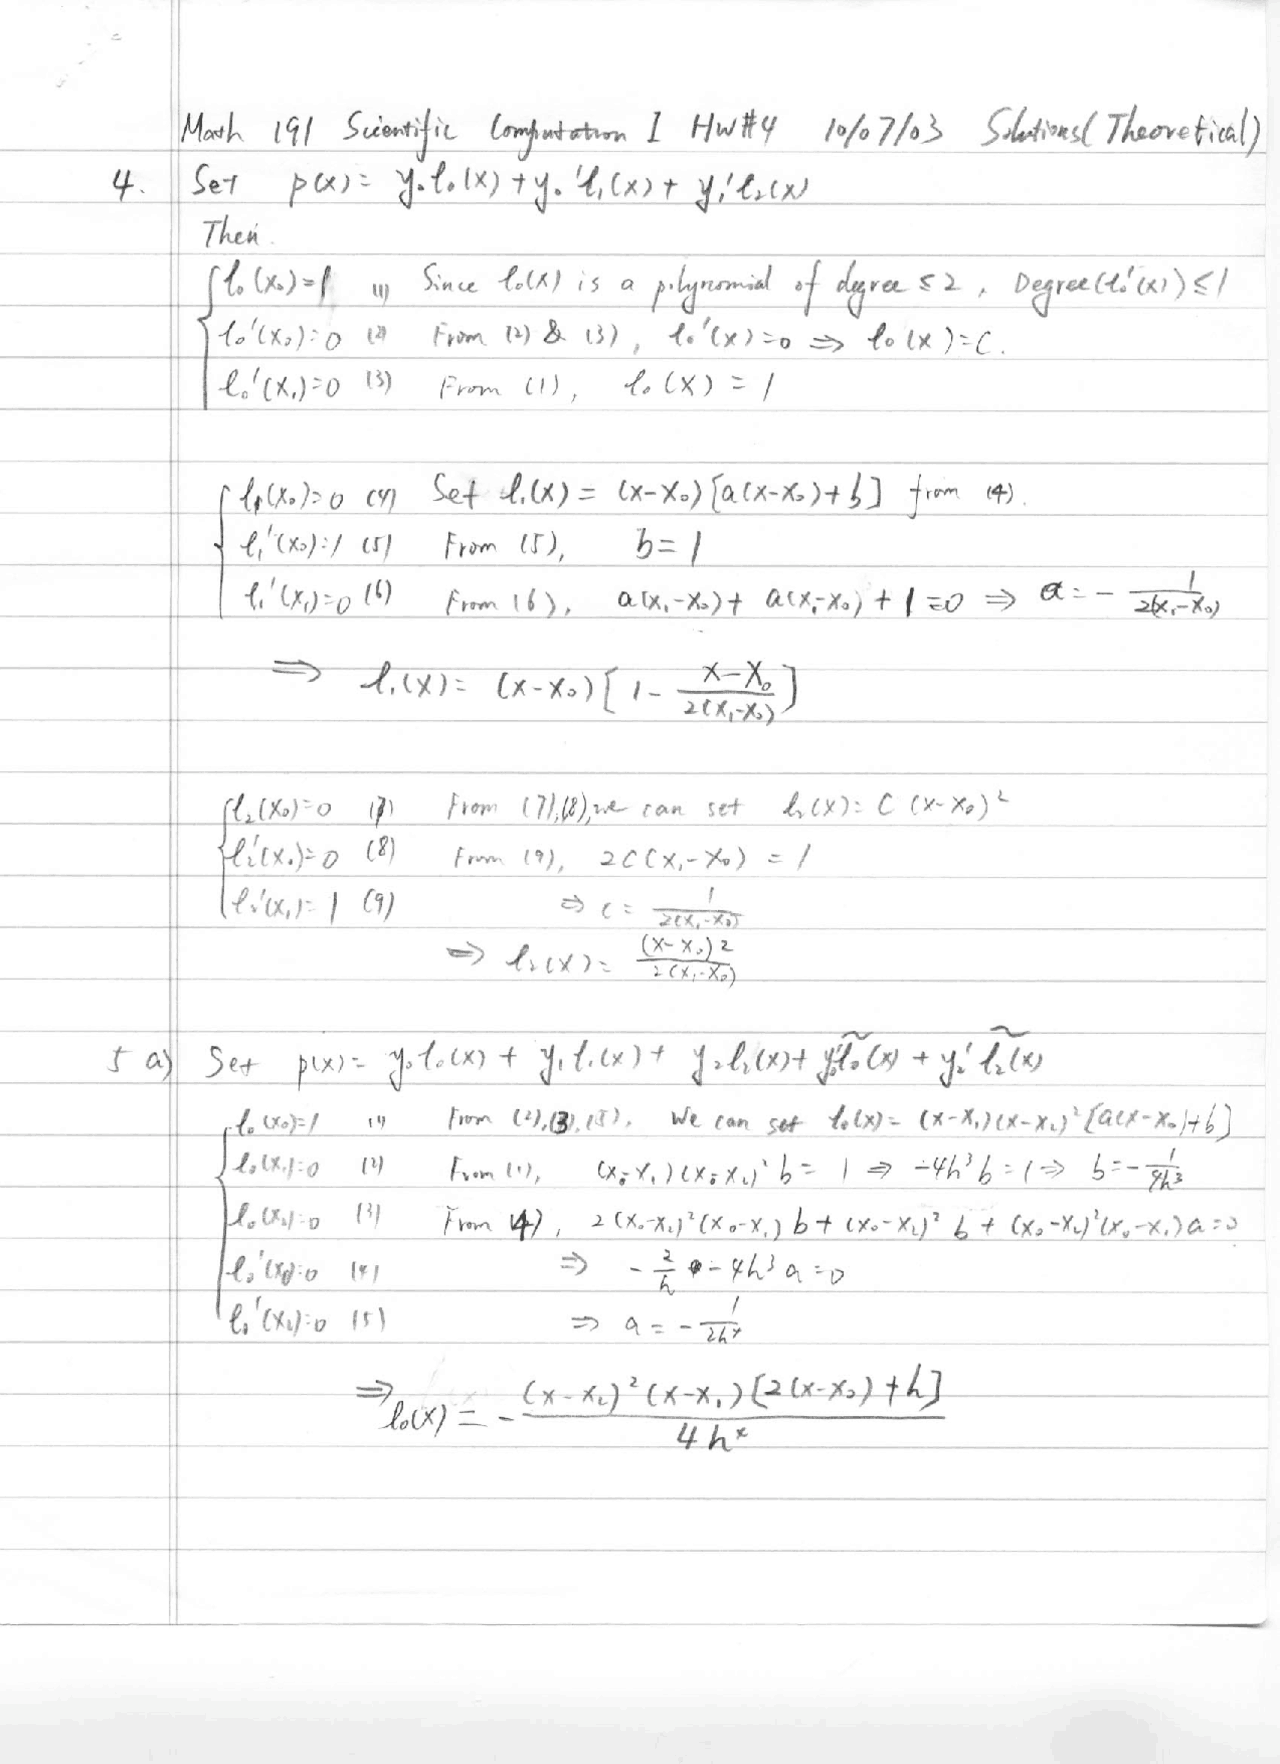 Math 191 Scientific Computation I HW#4 10/07/03 Solutions (Theoretical)
4. Set p(x) = y₀l₀(x) + y₀'l₁(x) + y₁'l₂(x)
Then
l₀(x₀)=1 (1) Since l₀(x) is a polynomial of degree ≤ 2, Degree(l₀'(x)) ≤ 1
l₀'(x₀)=0 (2) From (2) & (3), l₀'(x)=0 ⇒ l₀(x)=C.
l₀'(x₁)=0 (3) From (1), l₀(x) = 1
l₁(x₀)=0 (4) Set l₁(x) = (x-x₀)[a(x-x₀)+b] from (4).
l₁'(x₀)=1 (5) From (5), b=1
l₁'(x₁)=0 (6) From (6), a(x₁-x₀)+a(x₁-x₀)+1=0 ⇒ a = -1/(2(x₁-x₀))
⇒ l₁(x) = (x-x₀)[1 - (x-x₀)/(2(x₁-x₀))]
l₂(x₀)=0 (7) From (7),(8), we can set l₂(x) = C(x-x₀)²
l₂'(x₀)=0 (8) From (9), 2C(x₁-x₀) = 1
l₂'(x₁)=1 (9) ⇒ C = 1/(2(x₁-x₀))
⇒ l₂(x) = (x-x₀)²/(2(x₁-x₀))
5 a) Set p(x) = y₀l₀(x) + y₁l₁(x) + y₂l₂(x) + y₀'l̃₀(x) + y₂'l̃₂(x)
l₀(x₀)=1 (1) From (2),(3),(5), We can set l₀(x) = (x-x₁)(x-x₂)²[a(x-x₀)+b]
l₀(x₁)=0 (2) From (1), (x₀-x₁)(x₀-x₂)²b = 1 ⇒ -4h³b=1 ⇒ b = -1/(4h³)
l₀(x₂)=0 (3) From (4), 2(x₀-x₂)(x₀-x₁)b + (x₀-x₂)²b + (x₀-x₂)²(x₀-x₁)a=0
l₀'(x₀)=0 (4) ⇒ -2/h - 4h³a=0
l₀'(x₂)=0 (5) ⇒ a = -1/(2h⁴)
⇒ l₀(x) = -(x-x₂)²(x-x₁)[2(x-x₀)+h]/(4h⁴)